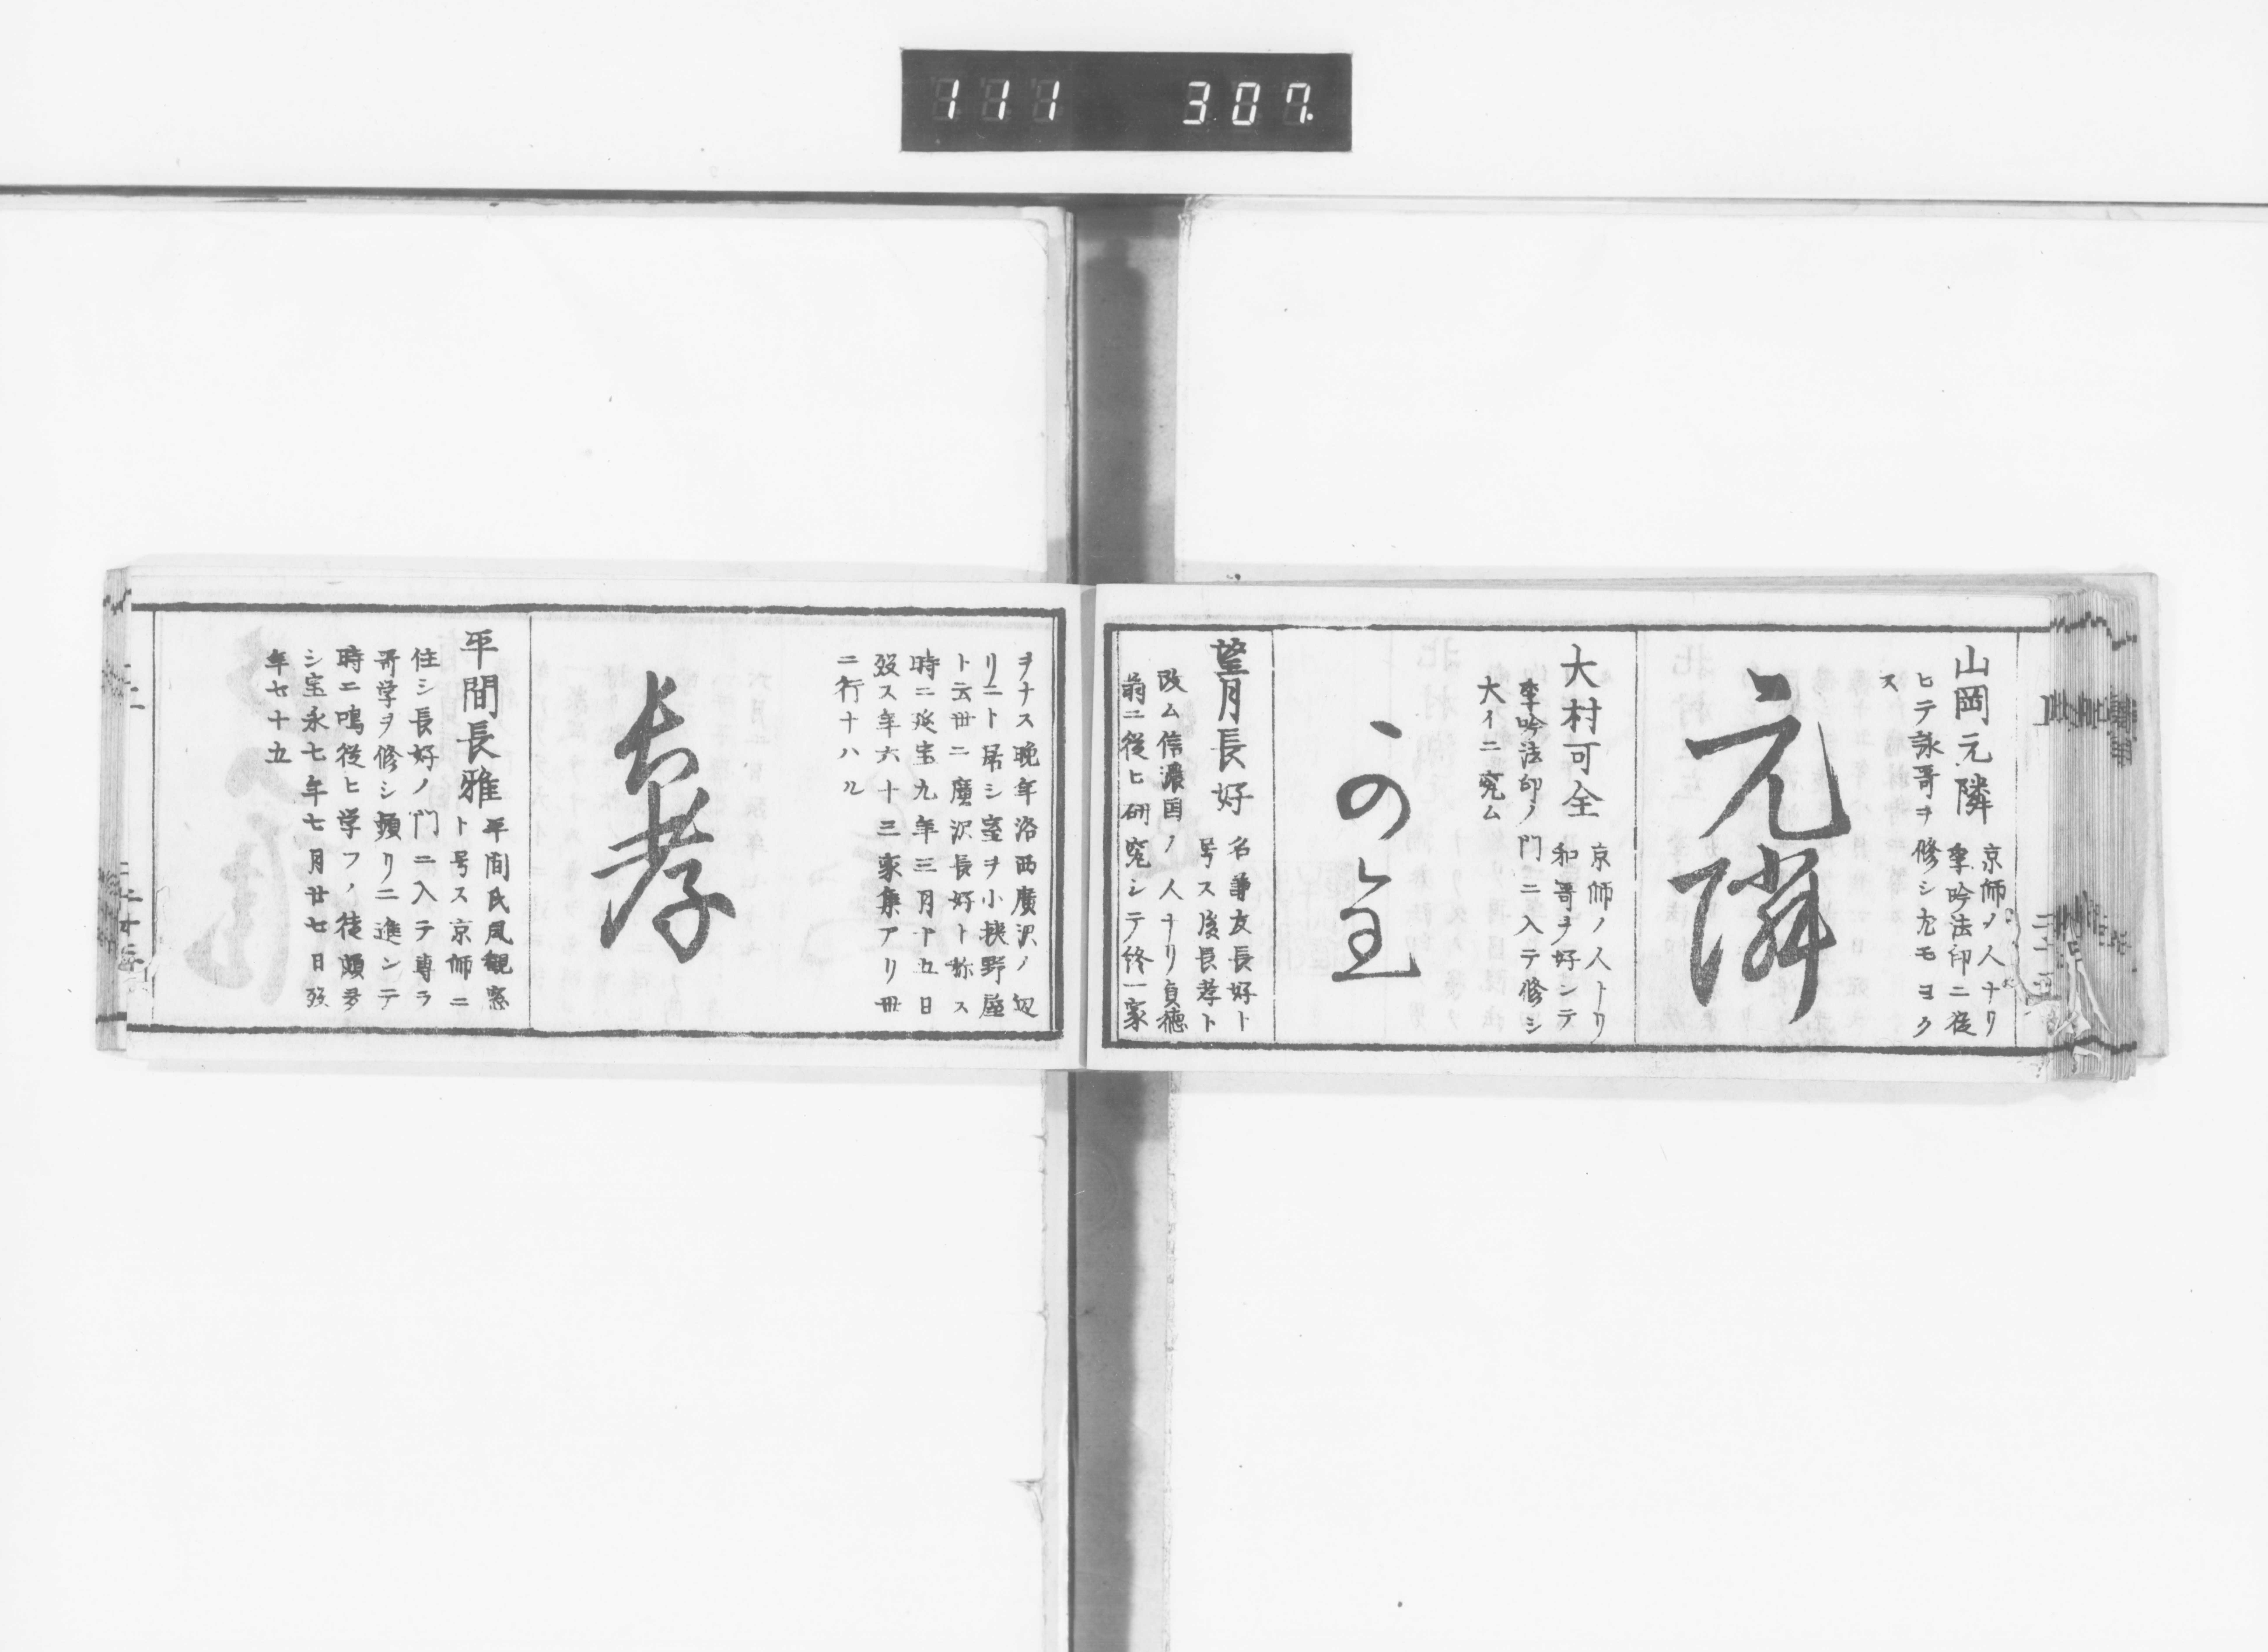 111 307.
山岡元隣 京師ノ人ナリ
季吟法印ニ從
ヒテ詠哥ヲ修シ尤モヨク
ス
元隣
大村可全 京師ノ人ナリ
和哥ヲ好ンテ
季吟法印ノ門ニ入テ修シ
大イニ究ム
可全
望月長好 名兼友長好ト
号ス後長孝ト
改ム信濃国ノ人ナリ貞徳
翁ニ從ヒ研究シテ終一家
ヲナス晩年洛西廣沢ノ辺
リニト居シ室ヲ小狭野屋
ト云世ニ廣沢長好ト称ス
時ニ延宝九年三月十五日
歿ス年六十三家集アリ世
ニ行ナハル
長孝
平間長雅 平間氏風観窓
ト号ス京師ニ
住シ長好ノ門ニ入テ専ラ
哥学ヲ修シ頻リニ進ンテ
時ニ鳴従ヒ学フノ徒頗多
シ宝永七年七月廿七日歿
年七十五